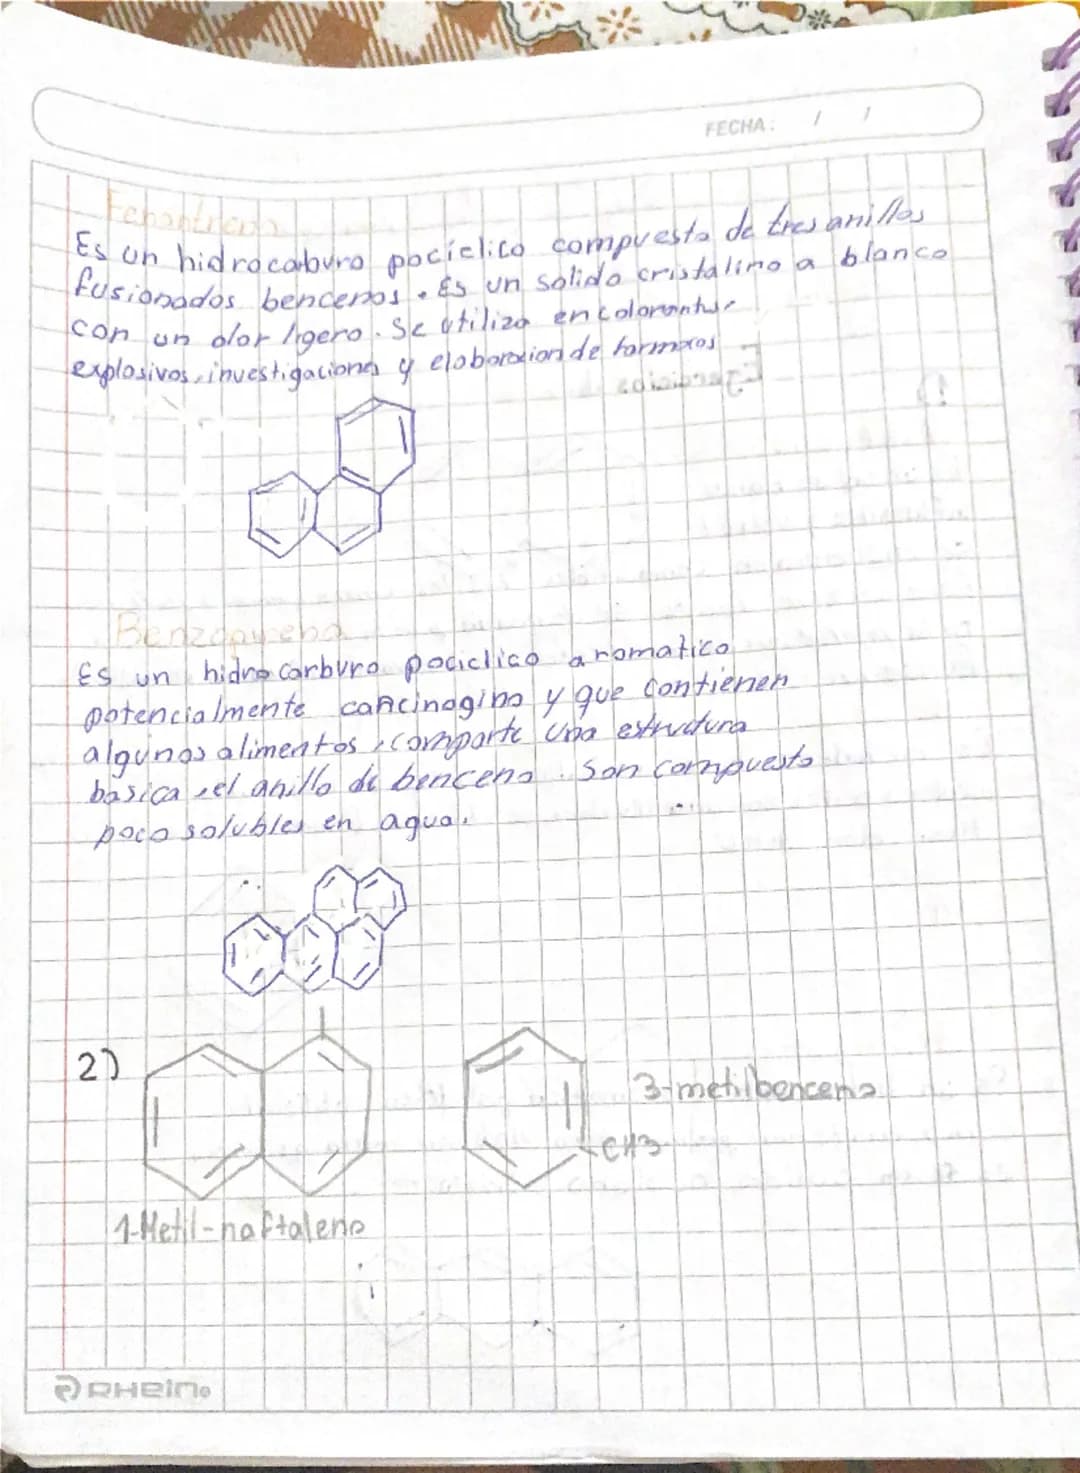 FECHA: / /
Fenantreno
Es un hidrocaburo pocíclico compuesto de tres anillos
fusionados bencenos. Es un solido cristalino a blanco
con un olor ligero. Se utiliza en colorantes
explosivos, investigaciones y elaboración de farmacos
Benzopireno
Es un hidrocarburo pociclico aromatico
potencialmente cancinogino y que contienen
algunos alimentos, comparte una estructura
basica, el anillo de benceno. Son compuesto
poco solubles en agua.
2)
3-metilbenceno
CH3
1-Metil-naftaleno
RHein